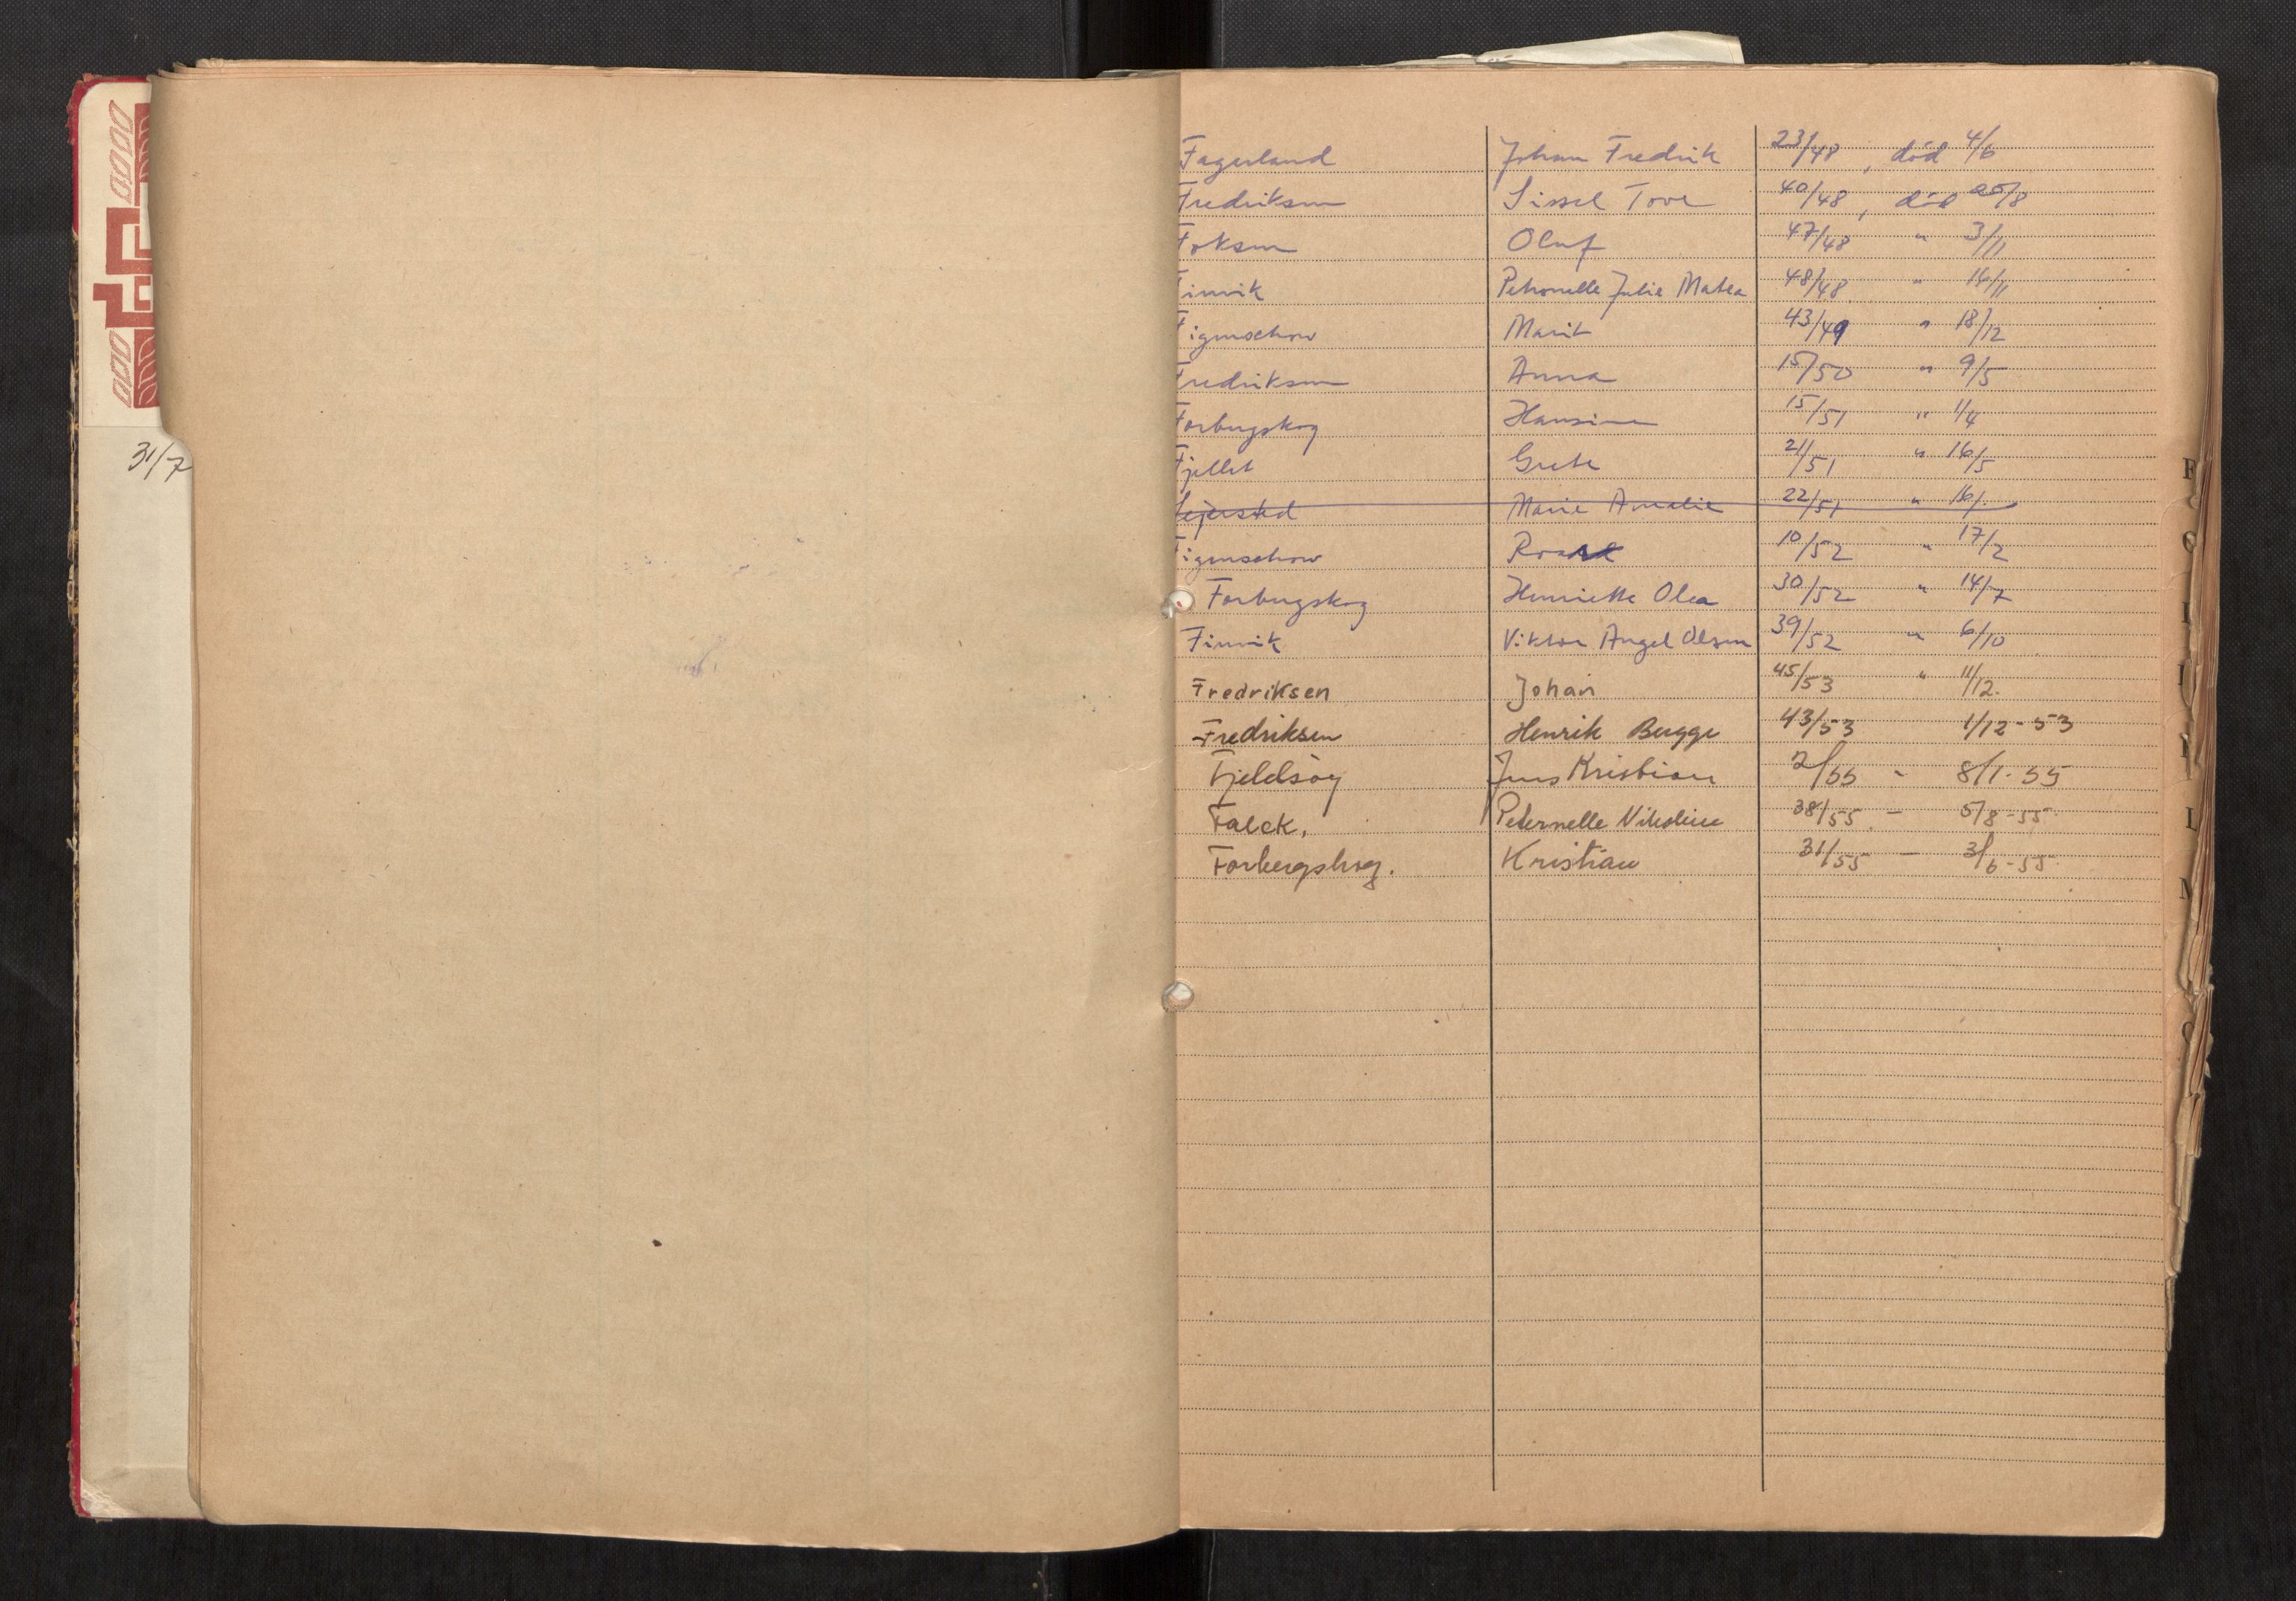 31/7
Fagerland Johan Fredrik 23/48, død 4/6
Fredriksen Sissel Tove 40/48, død 25/8
Foksen Oluf 47/48 " 3/11
Finvik Petronelle Julie Matea 48/48 " 14/11
Figenschow Marit 43/49 " 18/12
Fredriksen Anna 15/50 " 9/5
Forbergskog Hansine 15/51 " 1/4
Fjellet Grete 21/51 " 16/5
Lejersted Marie Amalie 22/51 " 16/
Figenschow 10/52 " 17/2
Forbergskog Henriette Olea 30/52 " 14/7
Finvik Viktor Angel Olsen 39/52 " 6/10
Fredriksen Johan 45/53 " 11/12.
Fredriksen Henrik Bugge 43/53 1/12-53
Fjeldsøy Jens Kristian 2/55 - 8/1-55
Falck, Peternelle Nikoline 38/55 - 5/8-55
Forbergskog. Kristian 31/55 - 3/6-55
F
L